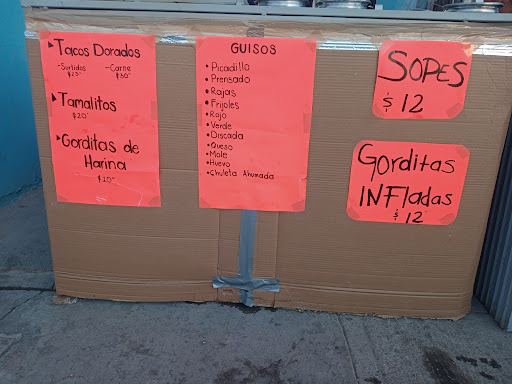 Tacos Dorados
-Surtidos -Carne
$25 $30
Tamalitos
$20
Gorditas de
Harina
$20
GUISOS
• Picadillo
• Prensado
• Rajas
• Frijoles
• Rojo
• Verde
• Discada
• Queso
• Mole
• Huevo
• Chuleta Ahumada
SOPES
$12
Gorditas
INFladas
$12